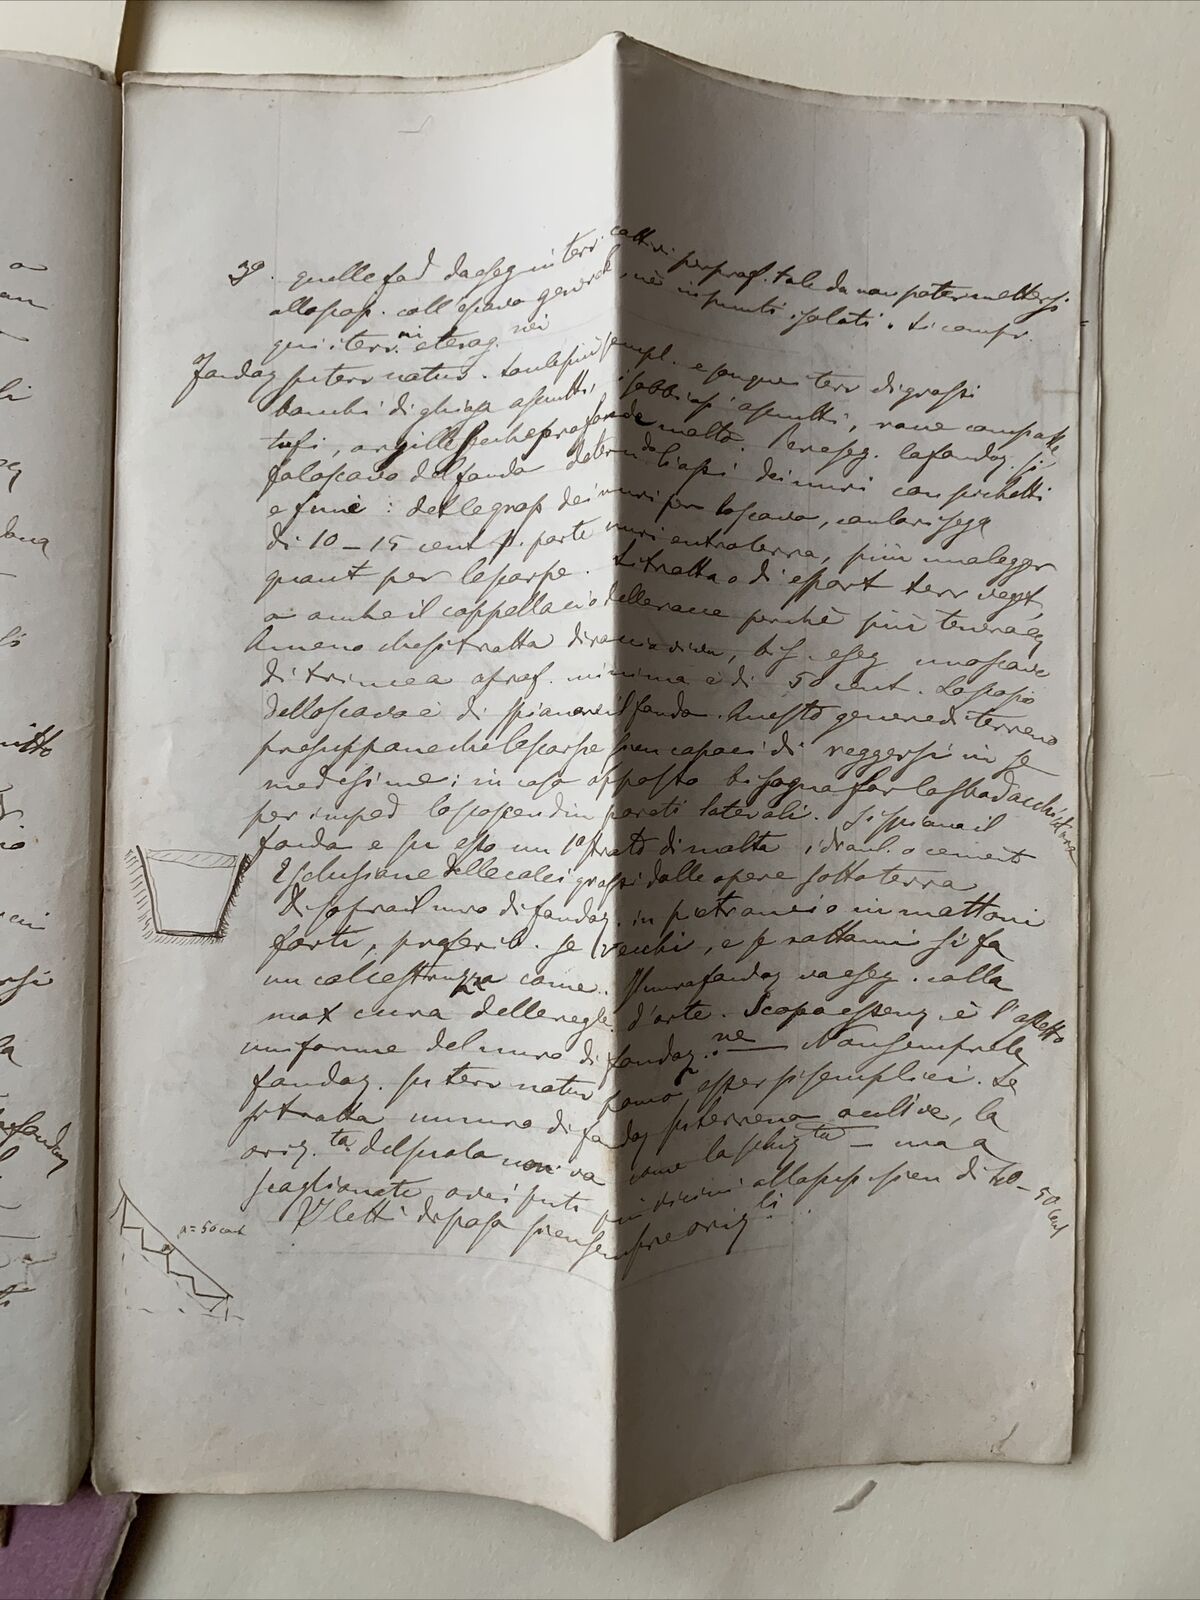 3º. quelle fod da eseg in terr. cattivi per prof. tale da non poter mettersi
allo scop. coll'scavo generale nè in punti isolati. Si compr.
qui i terr.ni eterog.nei
Fondaz su terr natur. son le più sempl. e seguon terr di grossi
banchi di ghiaja asciutti, sabbiosi asciutti, rocce compatte
tufi, argille perchè profonde molto. Per eseg. la fondaz. si
fa lo scavo del fondo determinando li assi dei muri con picchetti
e funi: delle gross dei muri per lo scavo, con larghezza
di 10 – 15 cent p. parte muri entroterra, più una legger
quant per le scarpe. Si tratta o di esport terr veget,
o anche il cappellaccio delle rocce perchè più tenero
Ameno che si tratta di roccia viva, bis. eseg uno scavo
di trincea a prof. minima è di 50 cent. Lo scopo
dello scavo è di spianare il fondo. Questo genere di terreno
presuppone che le scarpe sien capaci di reggersi in se
medesime; in caso opposto bisogna far la sbadacchiatura
per imped lo scoscendim pareti laterali. Si spiana il
fondo e su esso un 1º strato di malta idraul. o cemento
Esclusione delle calci grasse dalle opere sottoterra
Di sopra il muro di fondaz. in pietrame o in mattoni
forti, preferib. se vecchi, e se rottami si fa
un calcestruzzo come. Il muro fondaz va eseg. colla
max cura delle regle d'arte. Scopo essenz. è l'assetto
uniforme del muro di fondaz.ne — Non sempre le
fondaz. su terr natur ponno esser sì semplici. Se
si tratta un muro di fondaz su terreno acclive, la
oriz.tà del suolo non va come la – ma a
scaglionate vicini alla sup. sien di 40 – 50 cent
I letti di posa sien sempre orizli
p = 50 cent